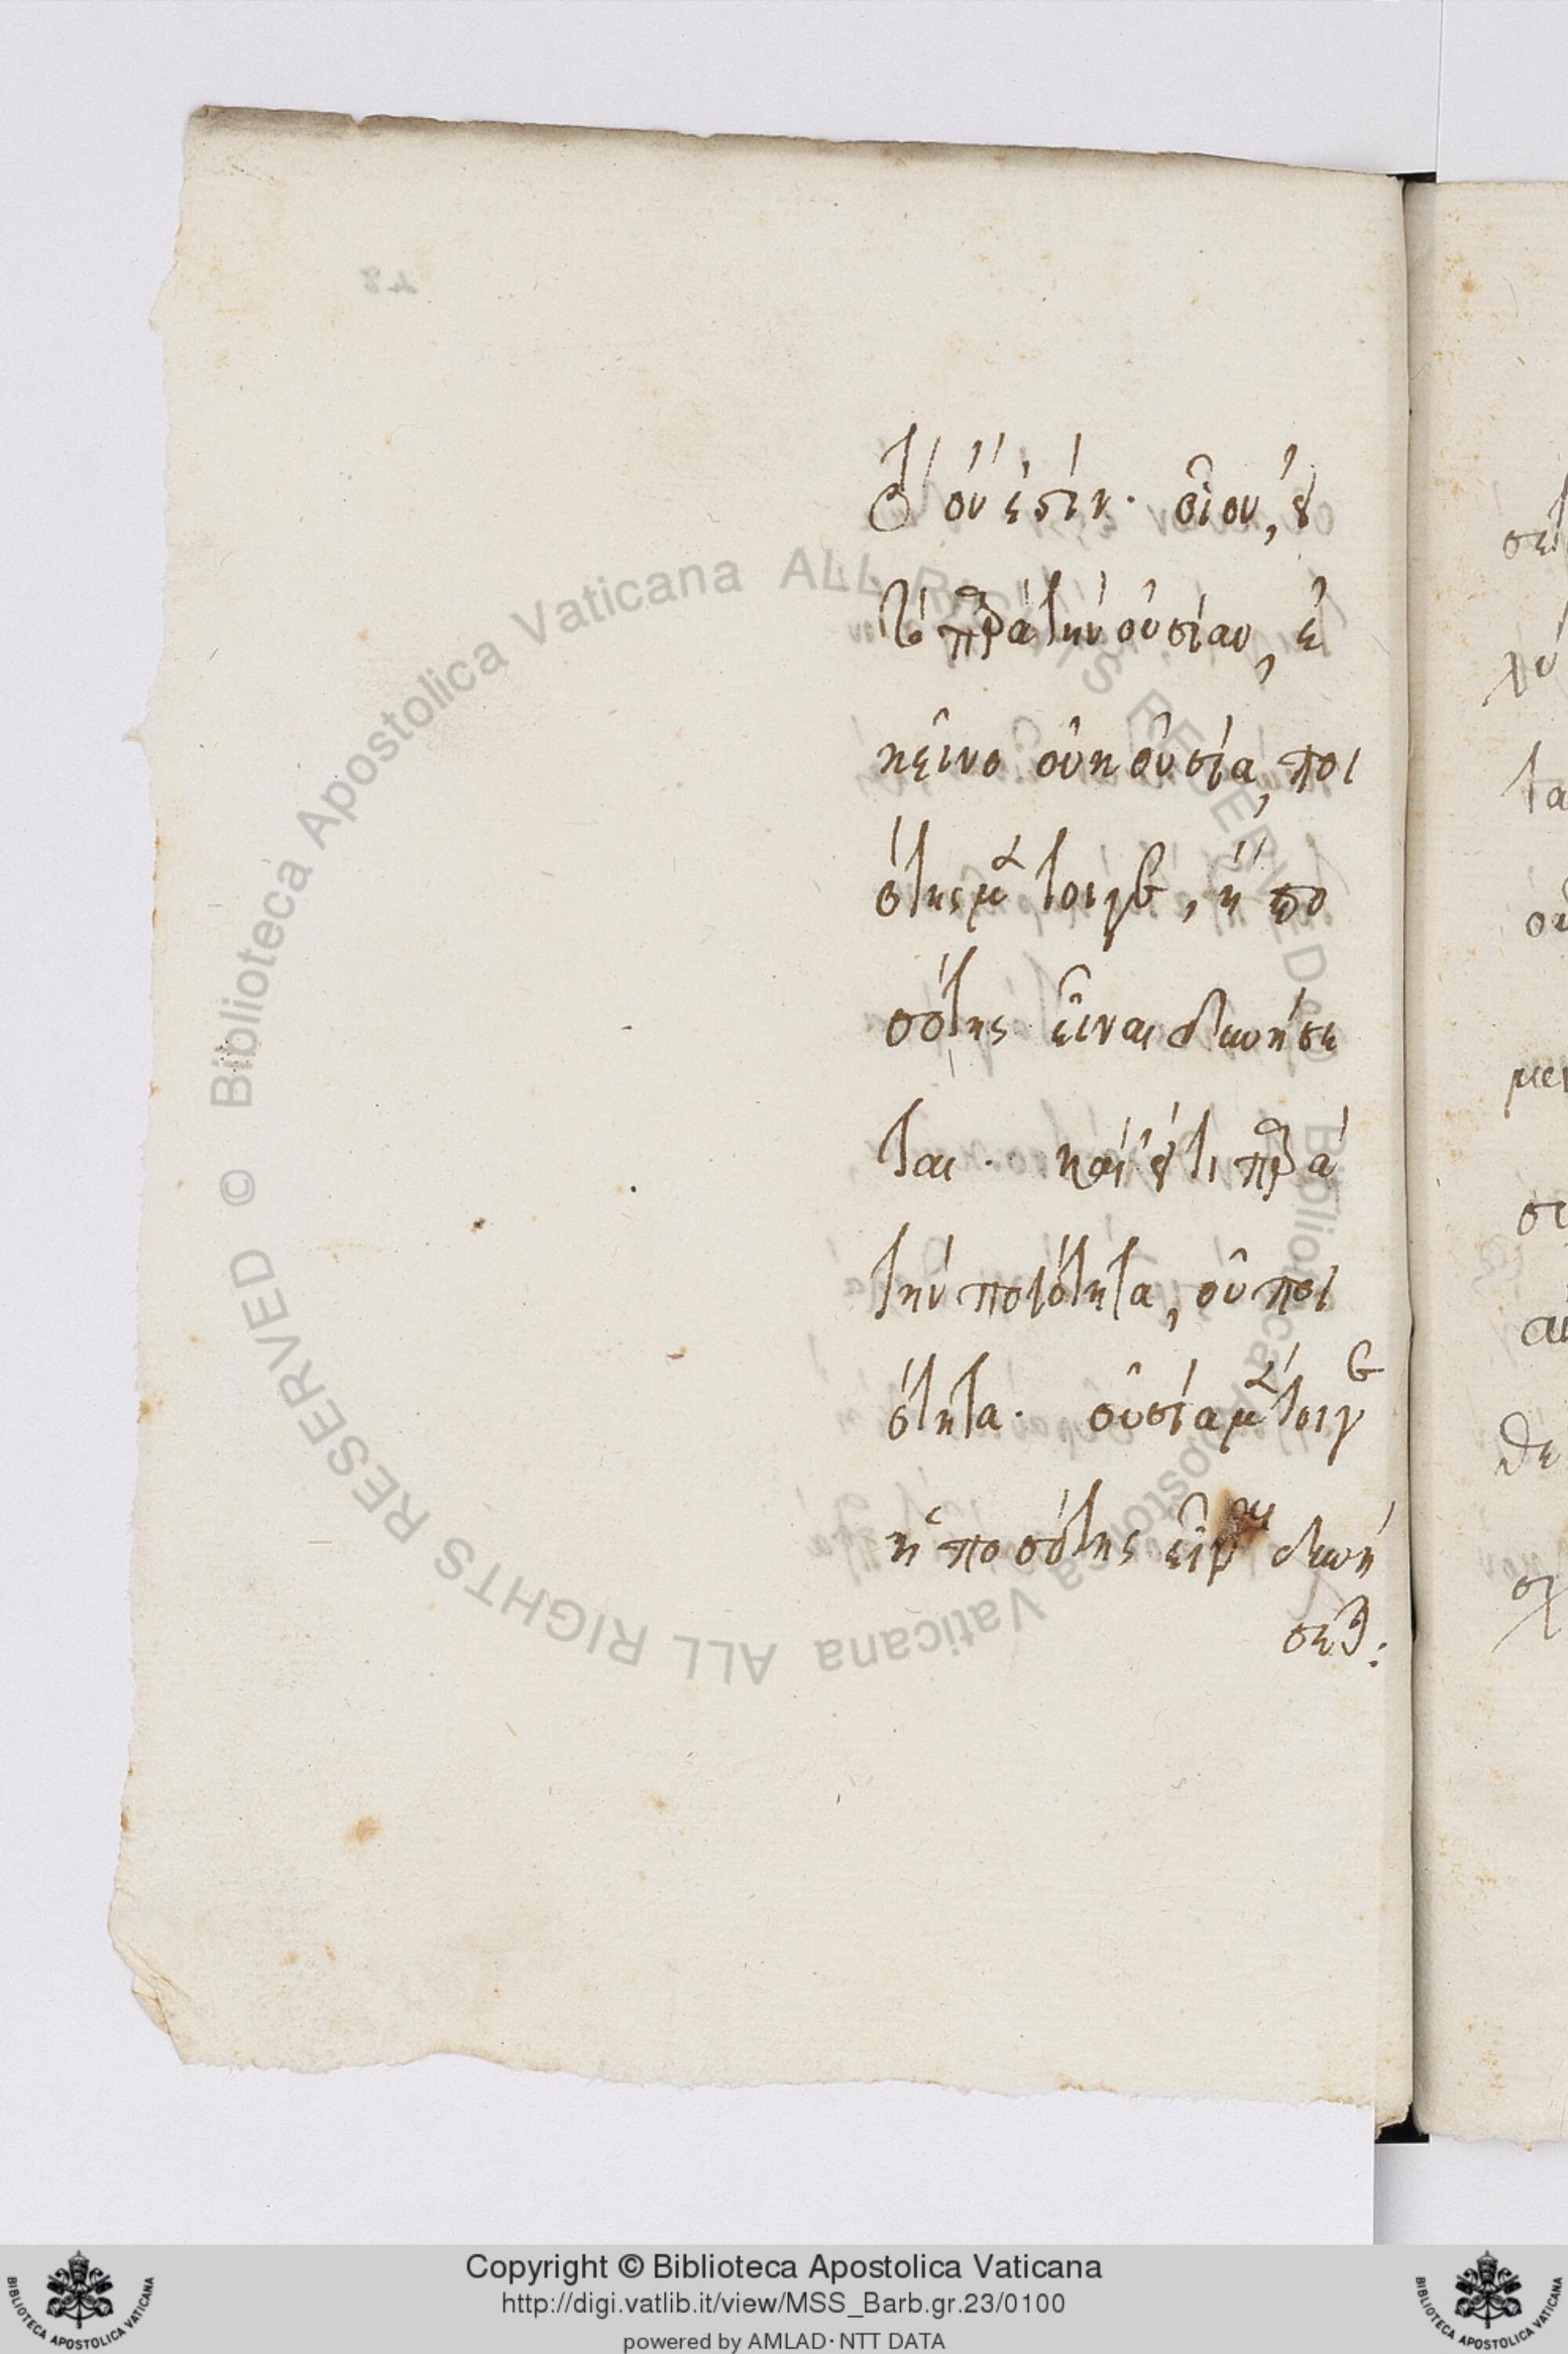 τὸ ὄν ἐστίν· οἷον, εἴ
τι παρὰ τὴν οὐσίαν, ἐ
κεῖνο οὐκ οὐσία, ποι
ότης μέντοιγε, ἢ πο
σότης εἶναι δυνήσε
ται· καὶ εἴ τι παρὰ
τὴν ποιότητα, οὐ ποι
ότητα· οὐσία μέντοιγε
ἢ ποσότης εἶναι δυνή
σεται:
Copyright © Biblioteca Apostolica Vaticana
http://digi.vatlib.it/view/MSS_Barb.gr.23/0100
powered by AMLAD·NTT DATA
© Biblioteca Apostolica Vaticana ALL RIGHTS RESERVED
© Biblioteca Apostolica Vaticana ALL RIGHTS RESERVED
BIBLIOTECA APOSTOLICA VATICANA
BIBLIOTECA APOSTOLICA VATICANA